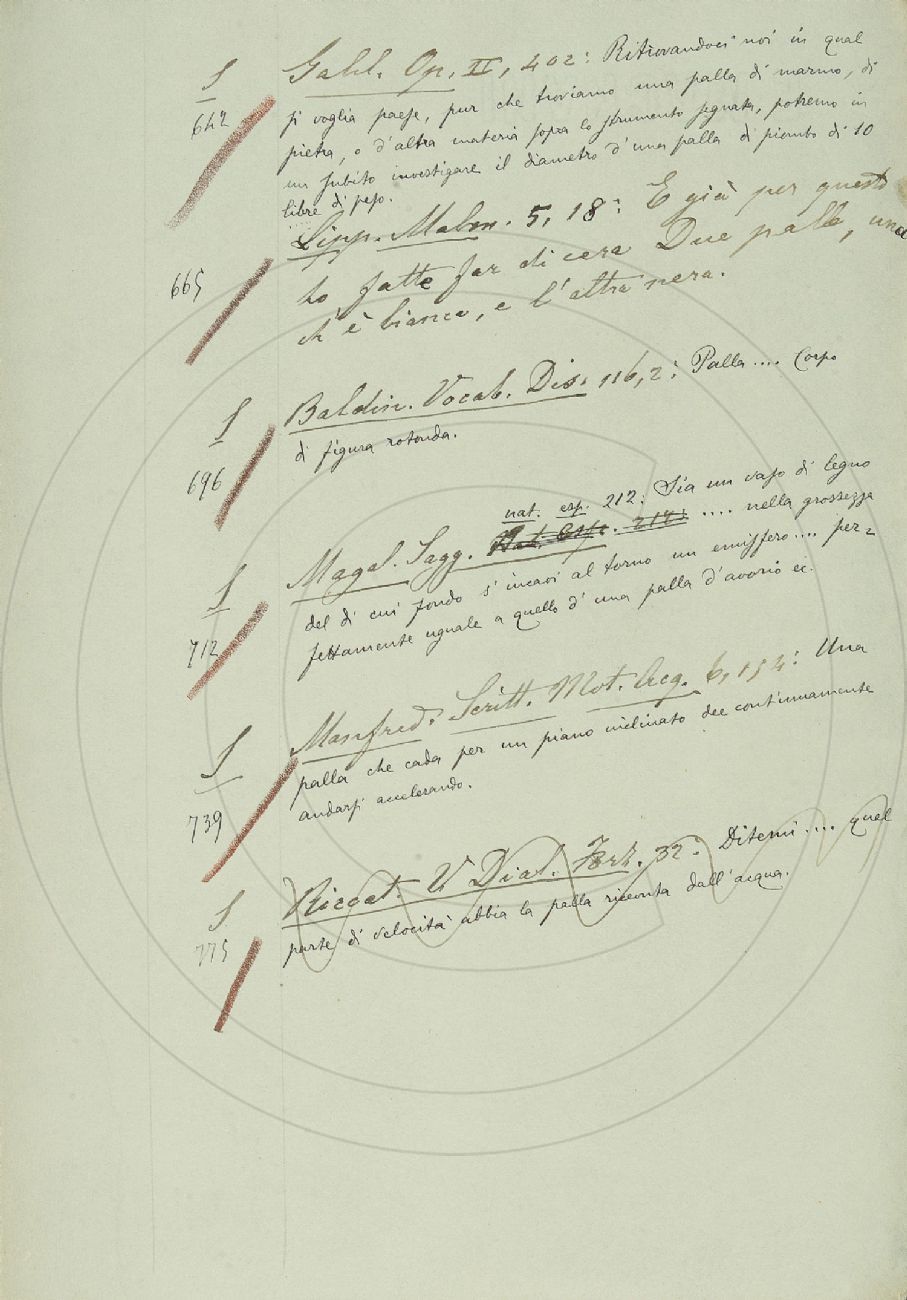 S
642
Galil. Op. II, 402: Ritrovandoci noi in qual
si voglia paese, pur che troviamo una palla di marmo, di
pietra, o d'altra materia sopra lo strumento segnata, potremo in
un subito investigare il diametro d'una palla di piombo di 10
libre di peso.
665
Lipp. Malm. 5, 18: E già per questo
ho fatte far di cera Due palle, una
ch'è bianca, e l'altra nera.
S
696
Baldin. Vocab. Dis. 116, 2: Palla .... Corpo
di figura rotonda.
S
712
nat. esp. 212: Sia un vaso di legno
Magal. Sagg. Nat. Esp. 212: .... nella grossezza
del di cui fondo s'incavi al torno un emisfero .... per=
fettamente uguale a quello d'una palla d'avorio ec.
S
739
Manfred. Scritt. Mot. Acq. 6, 154: Una
palla che cada per un piano inclinato dee continuamente
andarsi accelerando.
S
775
Riccat. V Dial. Forz. 32: Ditemi .... quel
parte di velocità abbia la palla ricevuta dall'acqua.